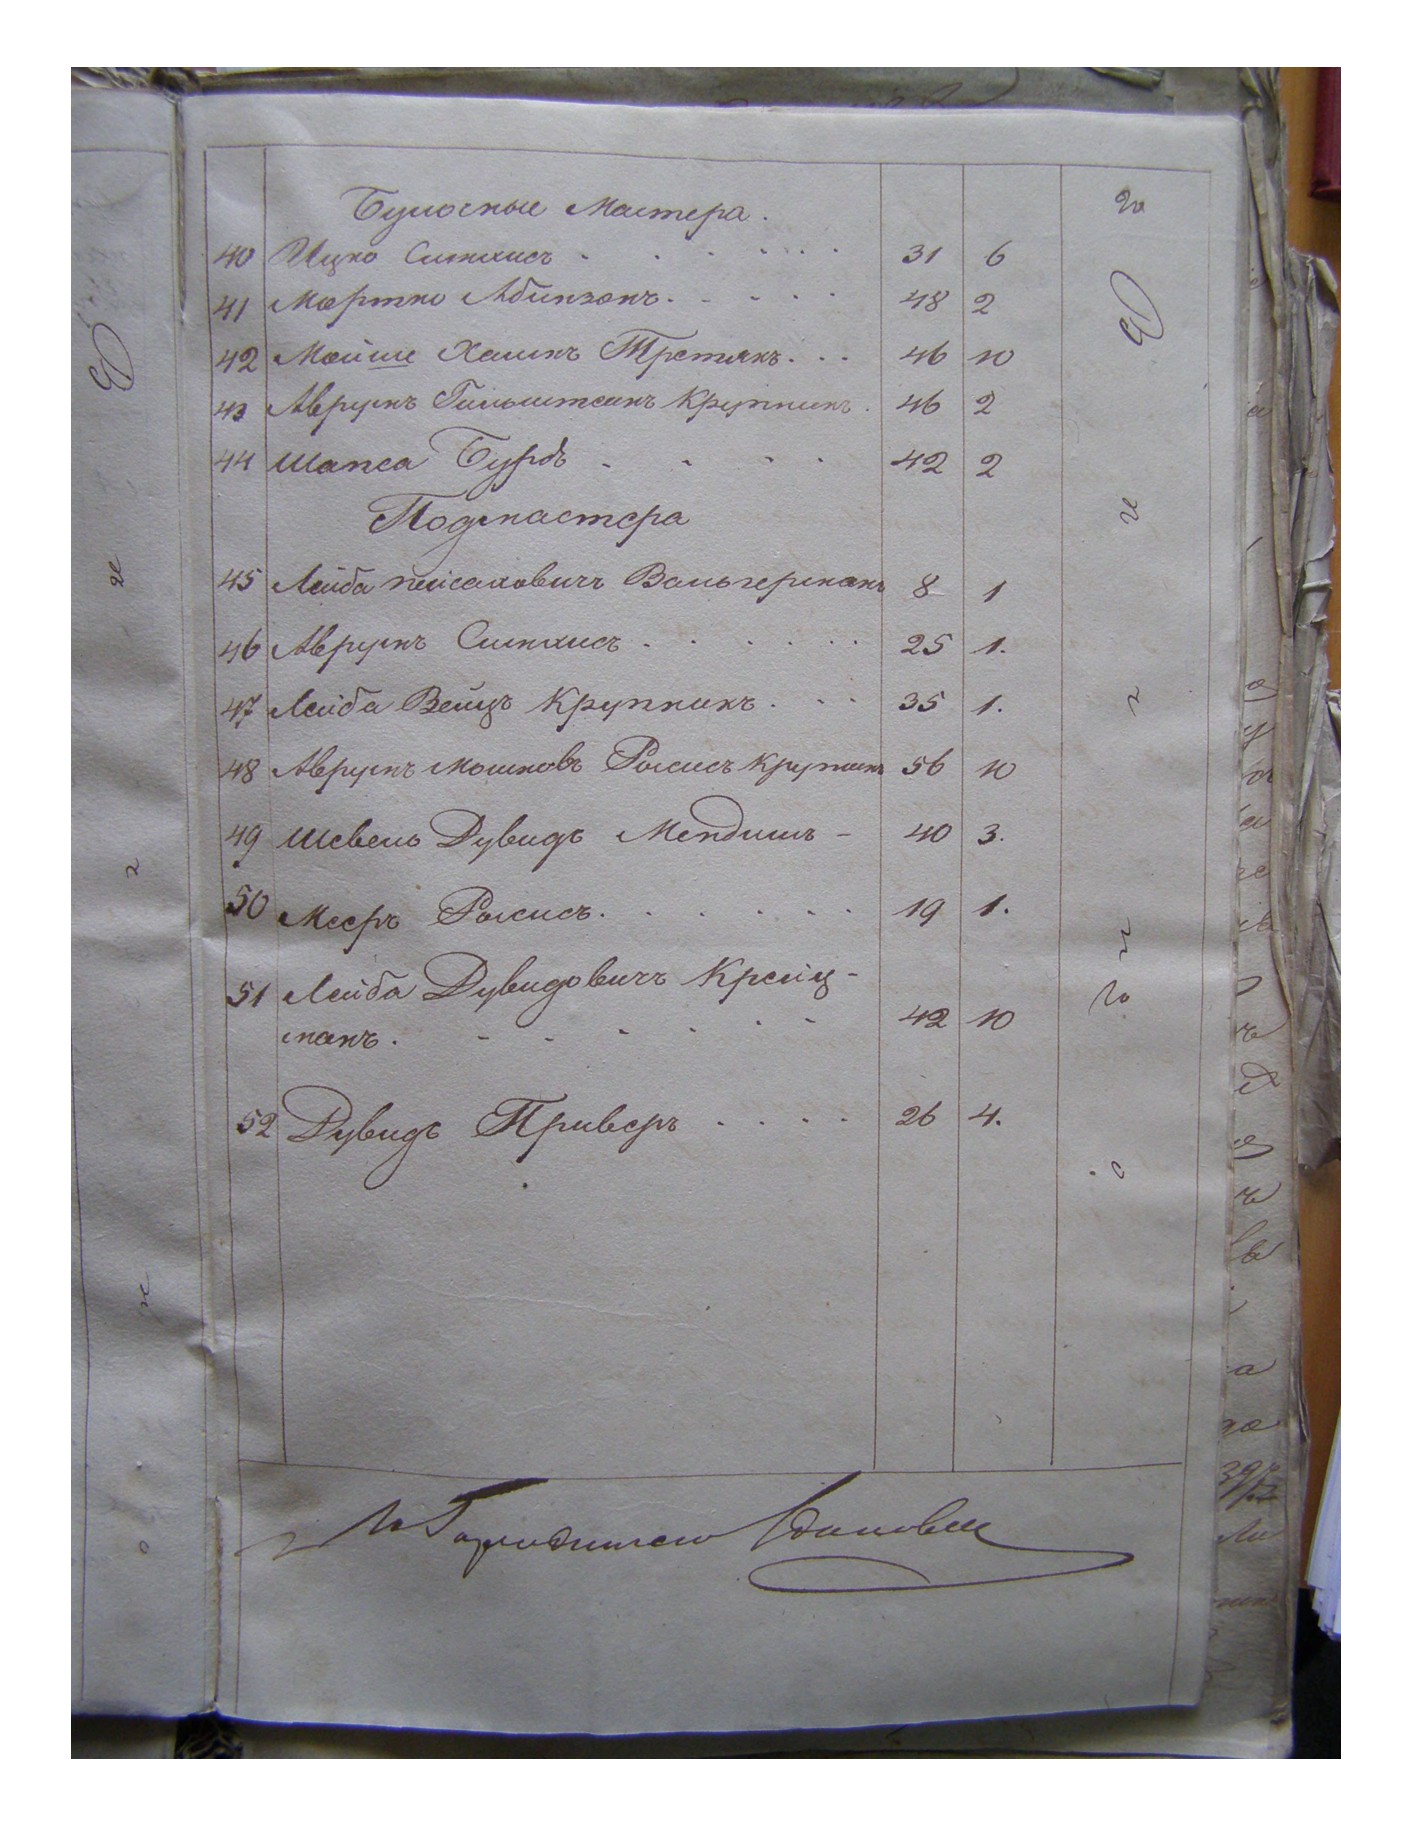 Булочные Мастера.
40 Ицко Симхисъ . . . . . . 31 6
41 Мортко Абинзонъ . . . . . 48 2
42 Мойше Хаимъ Третякъ . . . 46 10
43 Аврумъ Гильштеинъ Крупникъ . 46 2
44 Шапса Бурдъ . . . . 42 2
Подмастера
45 Лейба Пейсаховичъ Вальгерманъ 8 1
46 Аврумъ Симхисъ . . . . . . 25 1.
47 Лейба Вейцъ Крупникъ . . . 35 1.
48 Аврумъ Мошковъ Ройсисъ Крупникъ 56 10
49 Шевель Дувидъ Мендишъ - 40 3.
50 Мееръ Ройсисъ . . . . . . 19 1.
51 Лейба Дувидовичъ Крейц-
манъ . - - - - - - 42 10
52 Дувидъ Триверъ . . . . 26 4.